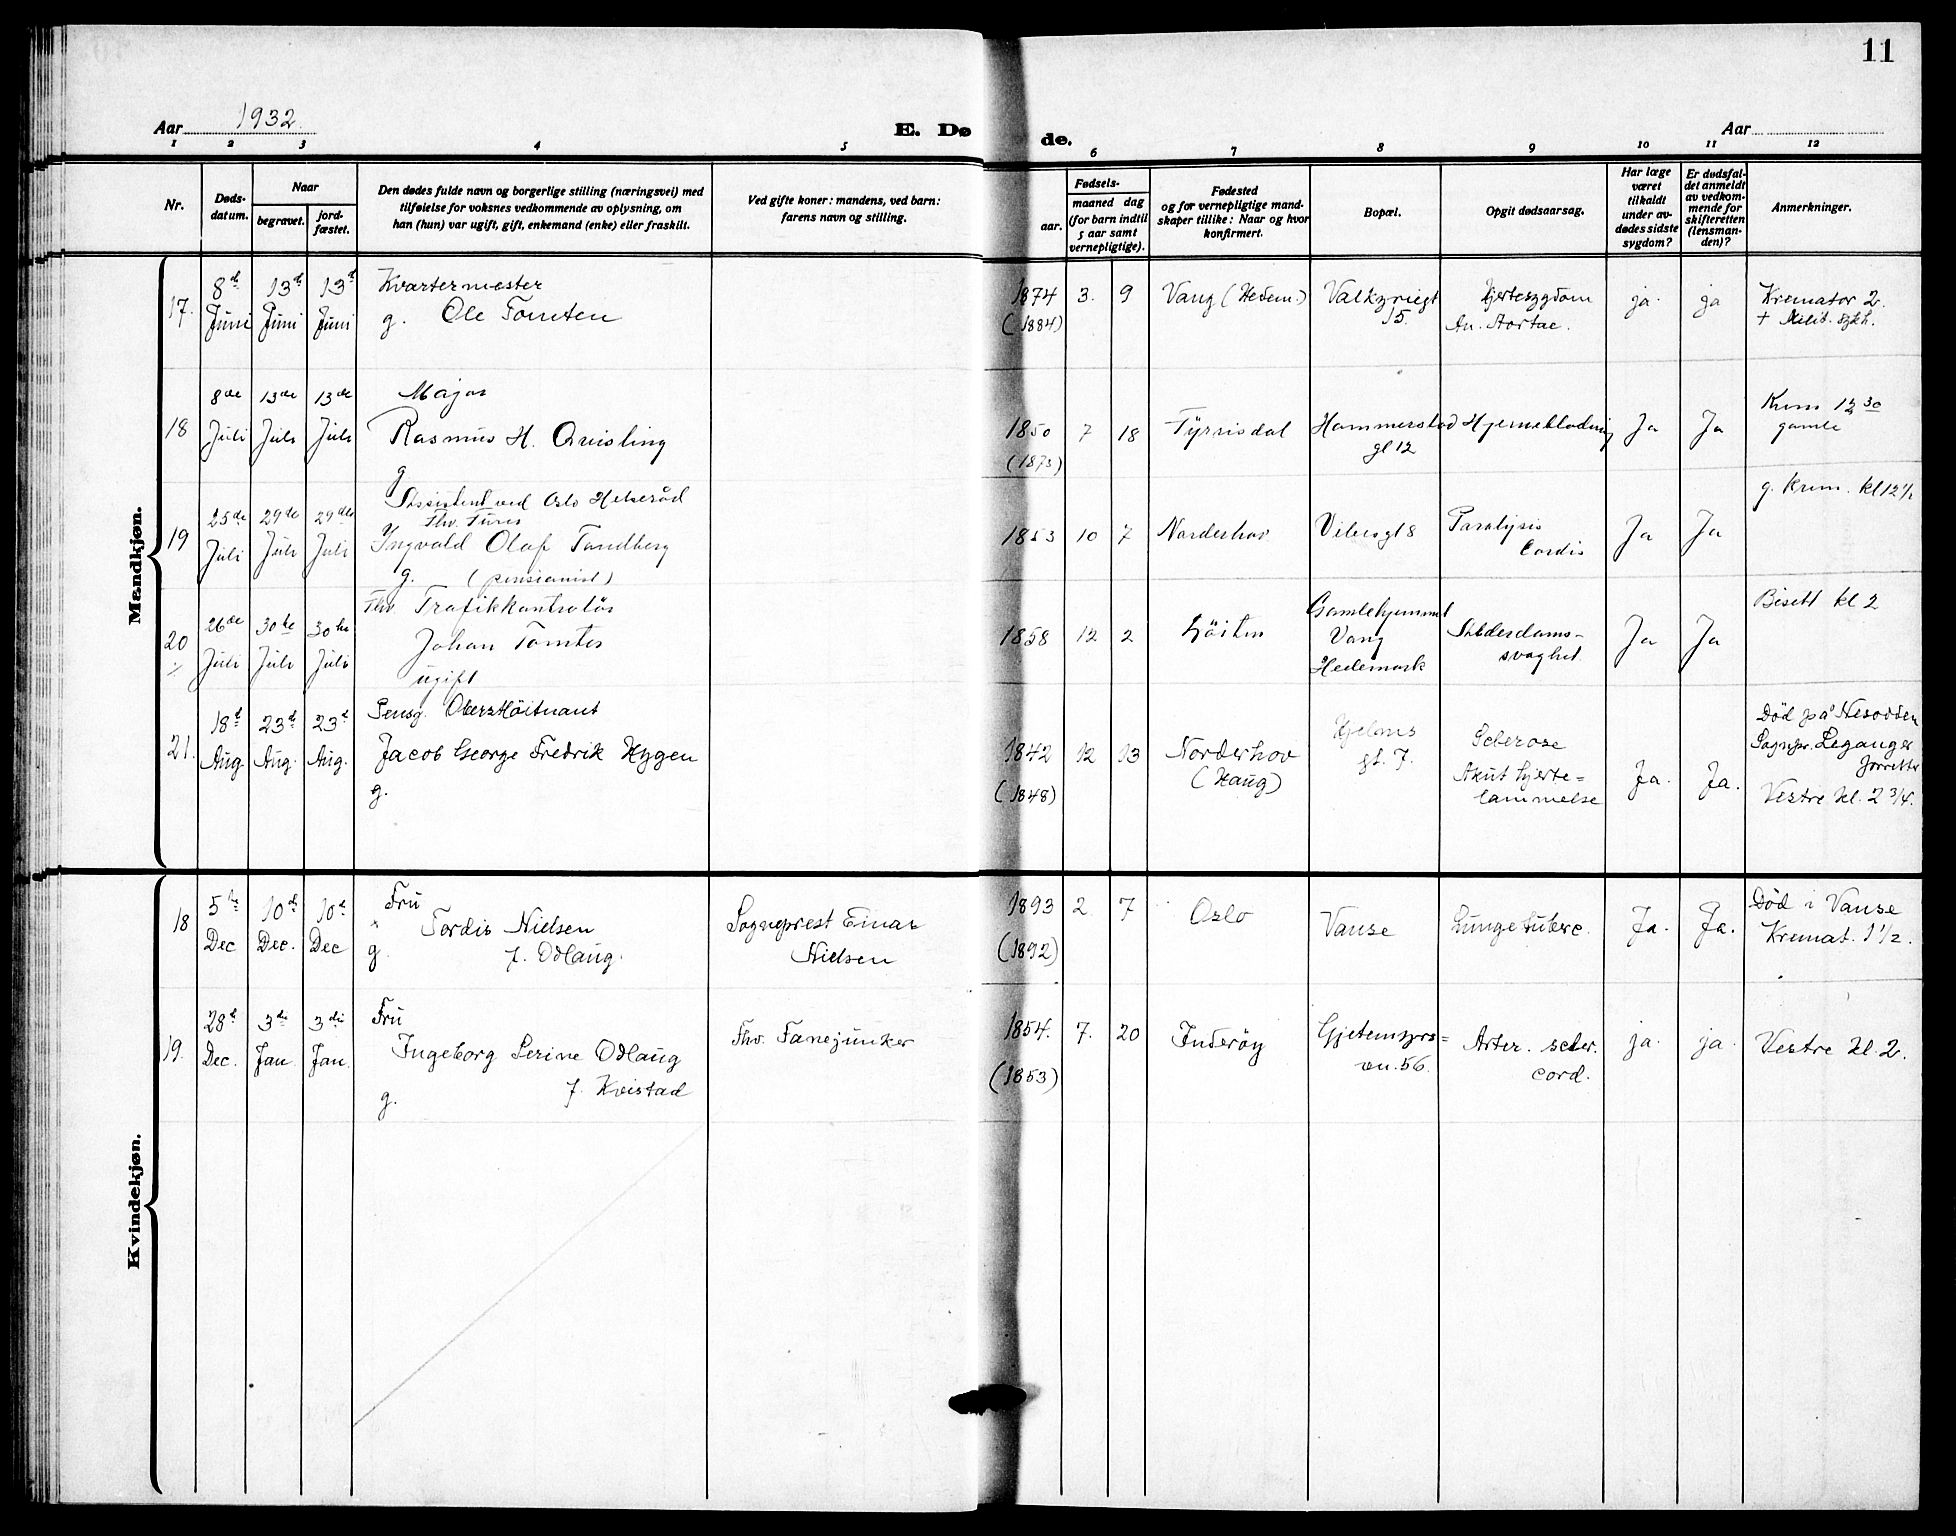 11
Aar 1932.
E. Dø
de.
Aar
1 2 3 4 5 6 7 8 9 10 11 12
Nr.
Døds-
datum.
Naar
begravet.
jord-
fæstet.
Den dødes fulde navn og borgerlige stilling (næringsvei) med
tilføielse for voksnes vedkommende av oplysning, om
han (hun) var ugift, gift, enkemand (enke) eller fraskilt.
Ved gifte koner: mandens, ved barn:
farens navn og stilling.
Fødsels-
aar.
maaned dag
(for barn indtil
5 aar samt
vernepligtige).
Fødested
og for vernepligtige mand-
skaper tillike: Naar og hvor
konfirmert.
Bopæl.
Opgit dødsaarsag.
Har læge
været
tilkaldt
under av-
dødes sidste
sygdom?
Er dødsfal-
det anmeldt
av vedkom-
mende for
skifteretten
(lensman-
den)?
Anmerkninger.
Mandkjøn.
17. 8de Juni 13de Juni 13de Juni
Kvartermester
g. Ole Tomten
1874 3. 9 Vang (Hedem.)
(1884)
Valkyriegt
15.
Hjertesygdom
An. Aortae.
ja. ja
Kremator 2.
+ Milit. sykh.
18 8de Juli 13de Juli 13de Juli
Major
Rasmus H. Quisling
g
1850 7 18 Tyrrisdal
(1873)
Hammerstad
gt 12
Hjerneblødning
Ja Ja
Krem 12 30
gamle
19 25de Juli 29de Juli 29de Juli
Assistent ved Oslo Helseråd
Thv. Furer
Ingvald Olaf Tandberg
g. (pensionist)
1853 10 7 Norderhov
Vibesgt 8
Paralysis
Cordis
Ja Ja
g. Krem. kl 12 1/2
20 26de Juli 30te Juli 30te Juli
Thv Trafikkontrolør
Johan Tomter
ugift
1858 12 2 Løiten
Gamlehjemmet
Vang
Hedemark
Alderdoms-
svaghet
Ja Ja
Bisett kl 2
21. 18d Aug. 23d Aug. 23d Aug.
Pensj. Oberstløitnant
Jacob George Fredrik Hygen
g.
1842 12 13 Norderhov
(1848) (Haug)
Hjelms
gt. 7.
Sclerose
Akut hjerte-
lammelse
Ja. Ja.
Død på Nesodden
Sognpr. Leganger
forrettet
Vestre kl. 2 3/4.
Kvindekjøn.
18 5te Dec 10d Dec. 10d Dec
Fru
Tordis Nielsen
g f. Odlaug.
Sogneprest Einar
Nielsen
1893 2 7 Oslo
(1892)
Vanse
Lungetuberc.
Ja. Ja.
Død i Vanse
Kremat. 1 1/2.
19. 28d Dec. 3die Jan. 3die Jan.
Fru
Ingeborg Serine Odlaug
f. Kvistad
g.
Thv. Fanejunker
1854. 7. 20 Inderøy
(1853)
Gjetemyrs=
vn. 56.
Arter. scler.
cord.
ja. ja.
Vestre kl. 2.